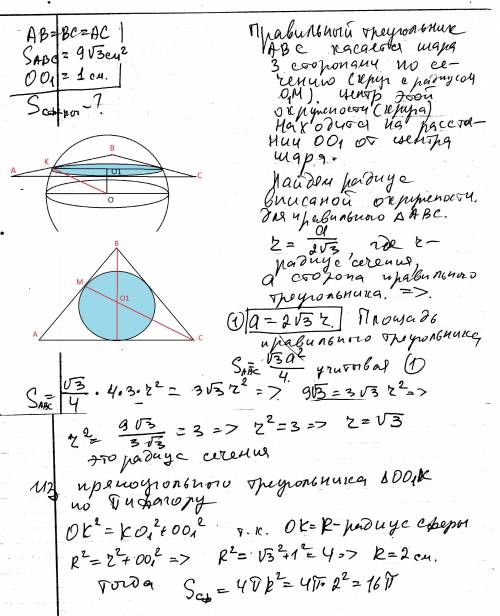 AB=BC=AC
S_ABC=9√3см²
OO₁=1см.
Sсферы-?
Правильный треугольник
ABC касается шара
3 сторонами по се-
чению (круг с радиусом
O₁M). Центр этой
окружности (круга)
находится на расстоя-
нии OO₁ от центра
шара.
B
K
O1
A
C
O
Найдем радиус
вписаной окружности.
Для правильного ΔABC.
r = a/2√3, где r-
радиус сечения,
a сторона правильного
треугольника. =>.
B
M
O1
A
C
① a=2√3 r. Площадь
правильного треугольника,
S_ABC = √3a²/4. учитывая ①
S_ABC = √3/4 · 4·3·r² = 3√3 r² => 9√3 = 3√3 r² =>
r² = 9√3/3√3 = 3 => r²=3 => r=√3
это радиус сечения
Из прямоугольного треугольника ΔOO₁K
по Пифагору
OK² = KO₁² + OO₁² т.к. OK=R-радиус сферы
R² = r² + OO₁² => R² = √3² + 1² = 4 => R=2 см.
тогда Sсф = 4πR² = 4π·2² = 16π